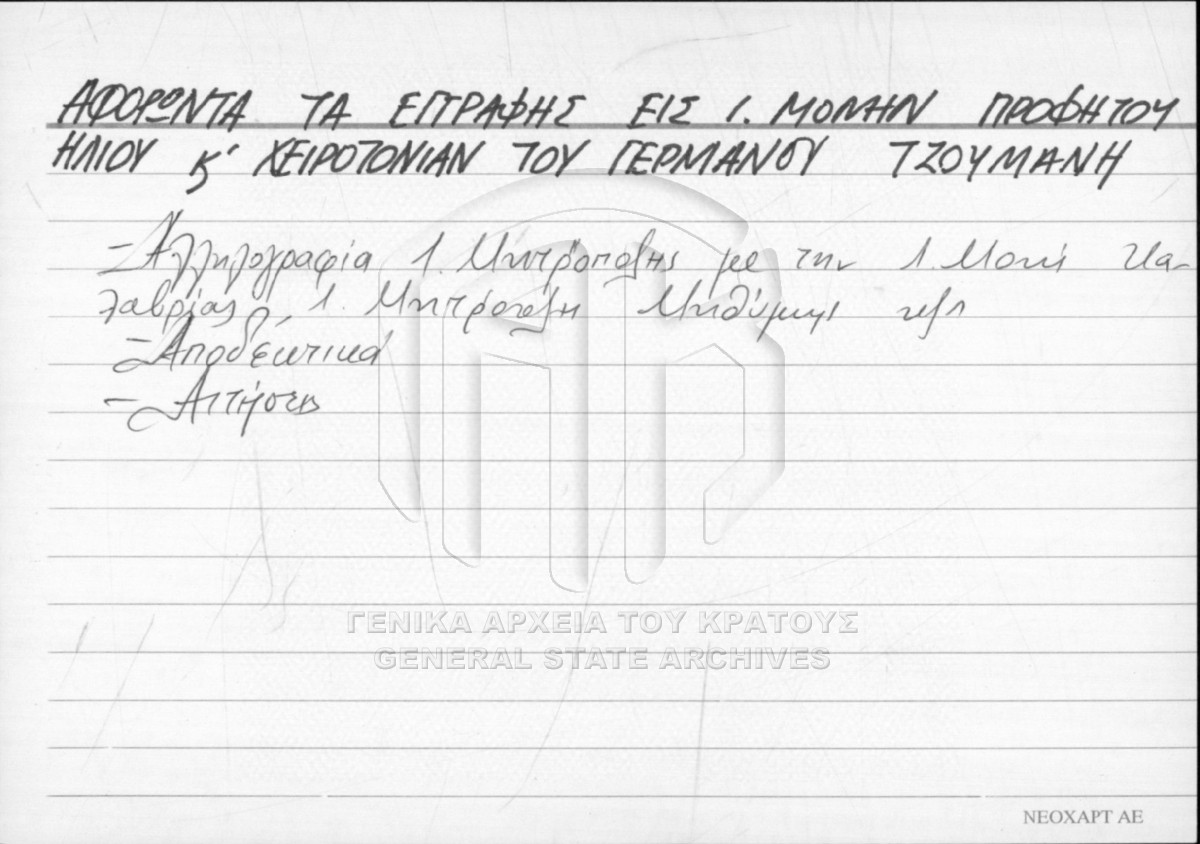 ΑΦΟΡΩΝΤΑ ΤΑ ΕΓΓΡΑΦΗΣ ΕΙΣ Ι. ΜΟΝΗΝ ΠΡΟΦΗΤΟΥ
ΗΛΙΟΥ Κ' ΧΕΙΡΟΤΟΝΙΑΝ ΤΟΥ ΓΕΡΜΑΝΟΥ ΤΖΟΥΜΑΝΗ
- Αλληλογραφία Ι. Μητρόπολης με την Ι. Μονή Κα-
λαβρίας, Ι. Μητρόπολη Μηθύμνης κλπ
- Αποδεικτικά
- Αιτήσεις
ΓΕΝΙΚΑ ΑΡΧΕΙΑ ΤΟΥ ΚΡΑΤΟΥΣ
GENERAL STATE ARCHIVES
ΝΕΟΧΑΡΤ ΑΕ